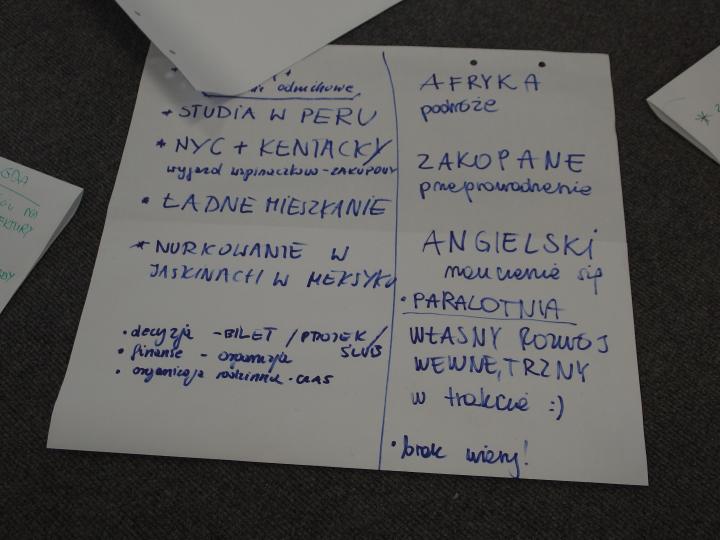 odruchowe
* STUDIA W PERU
* NYC + KENTACKY
wyjazd wspinaczkowo-ZAKUPOWY
• ŁADNE MIESZKANIE
* NURKOWANIE W
JASKINACH W MEKSYKU
• decyzja - BILET / PROJEK /
ŚLUB
• finanse - organizacja
• organizacja rodzinna - CZAS
AFRYKA
podróże
ZAKOPANE
przeprowadzenie
ANGIELSKI
nauczenie się
• PARALOTNIA
WŁASNY ROZWÓJ
WEWNĘTRZNY
w trakcie :)
• brak wiary!